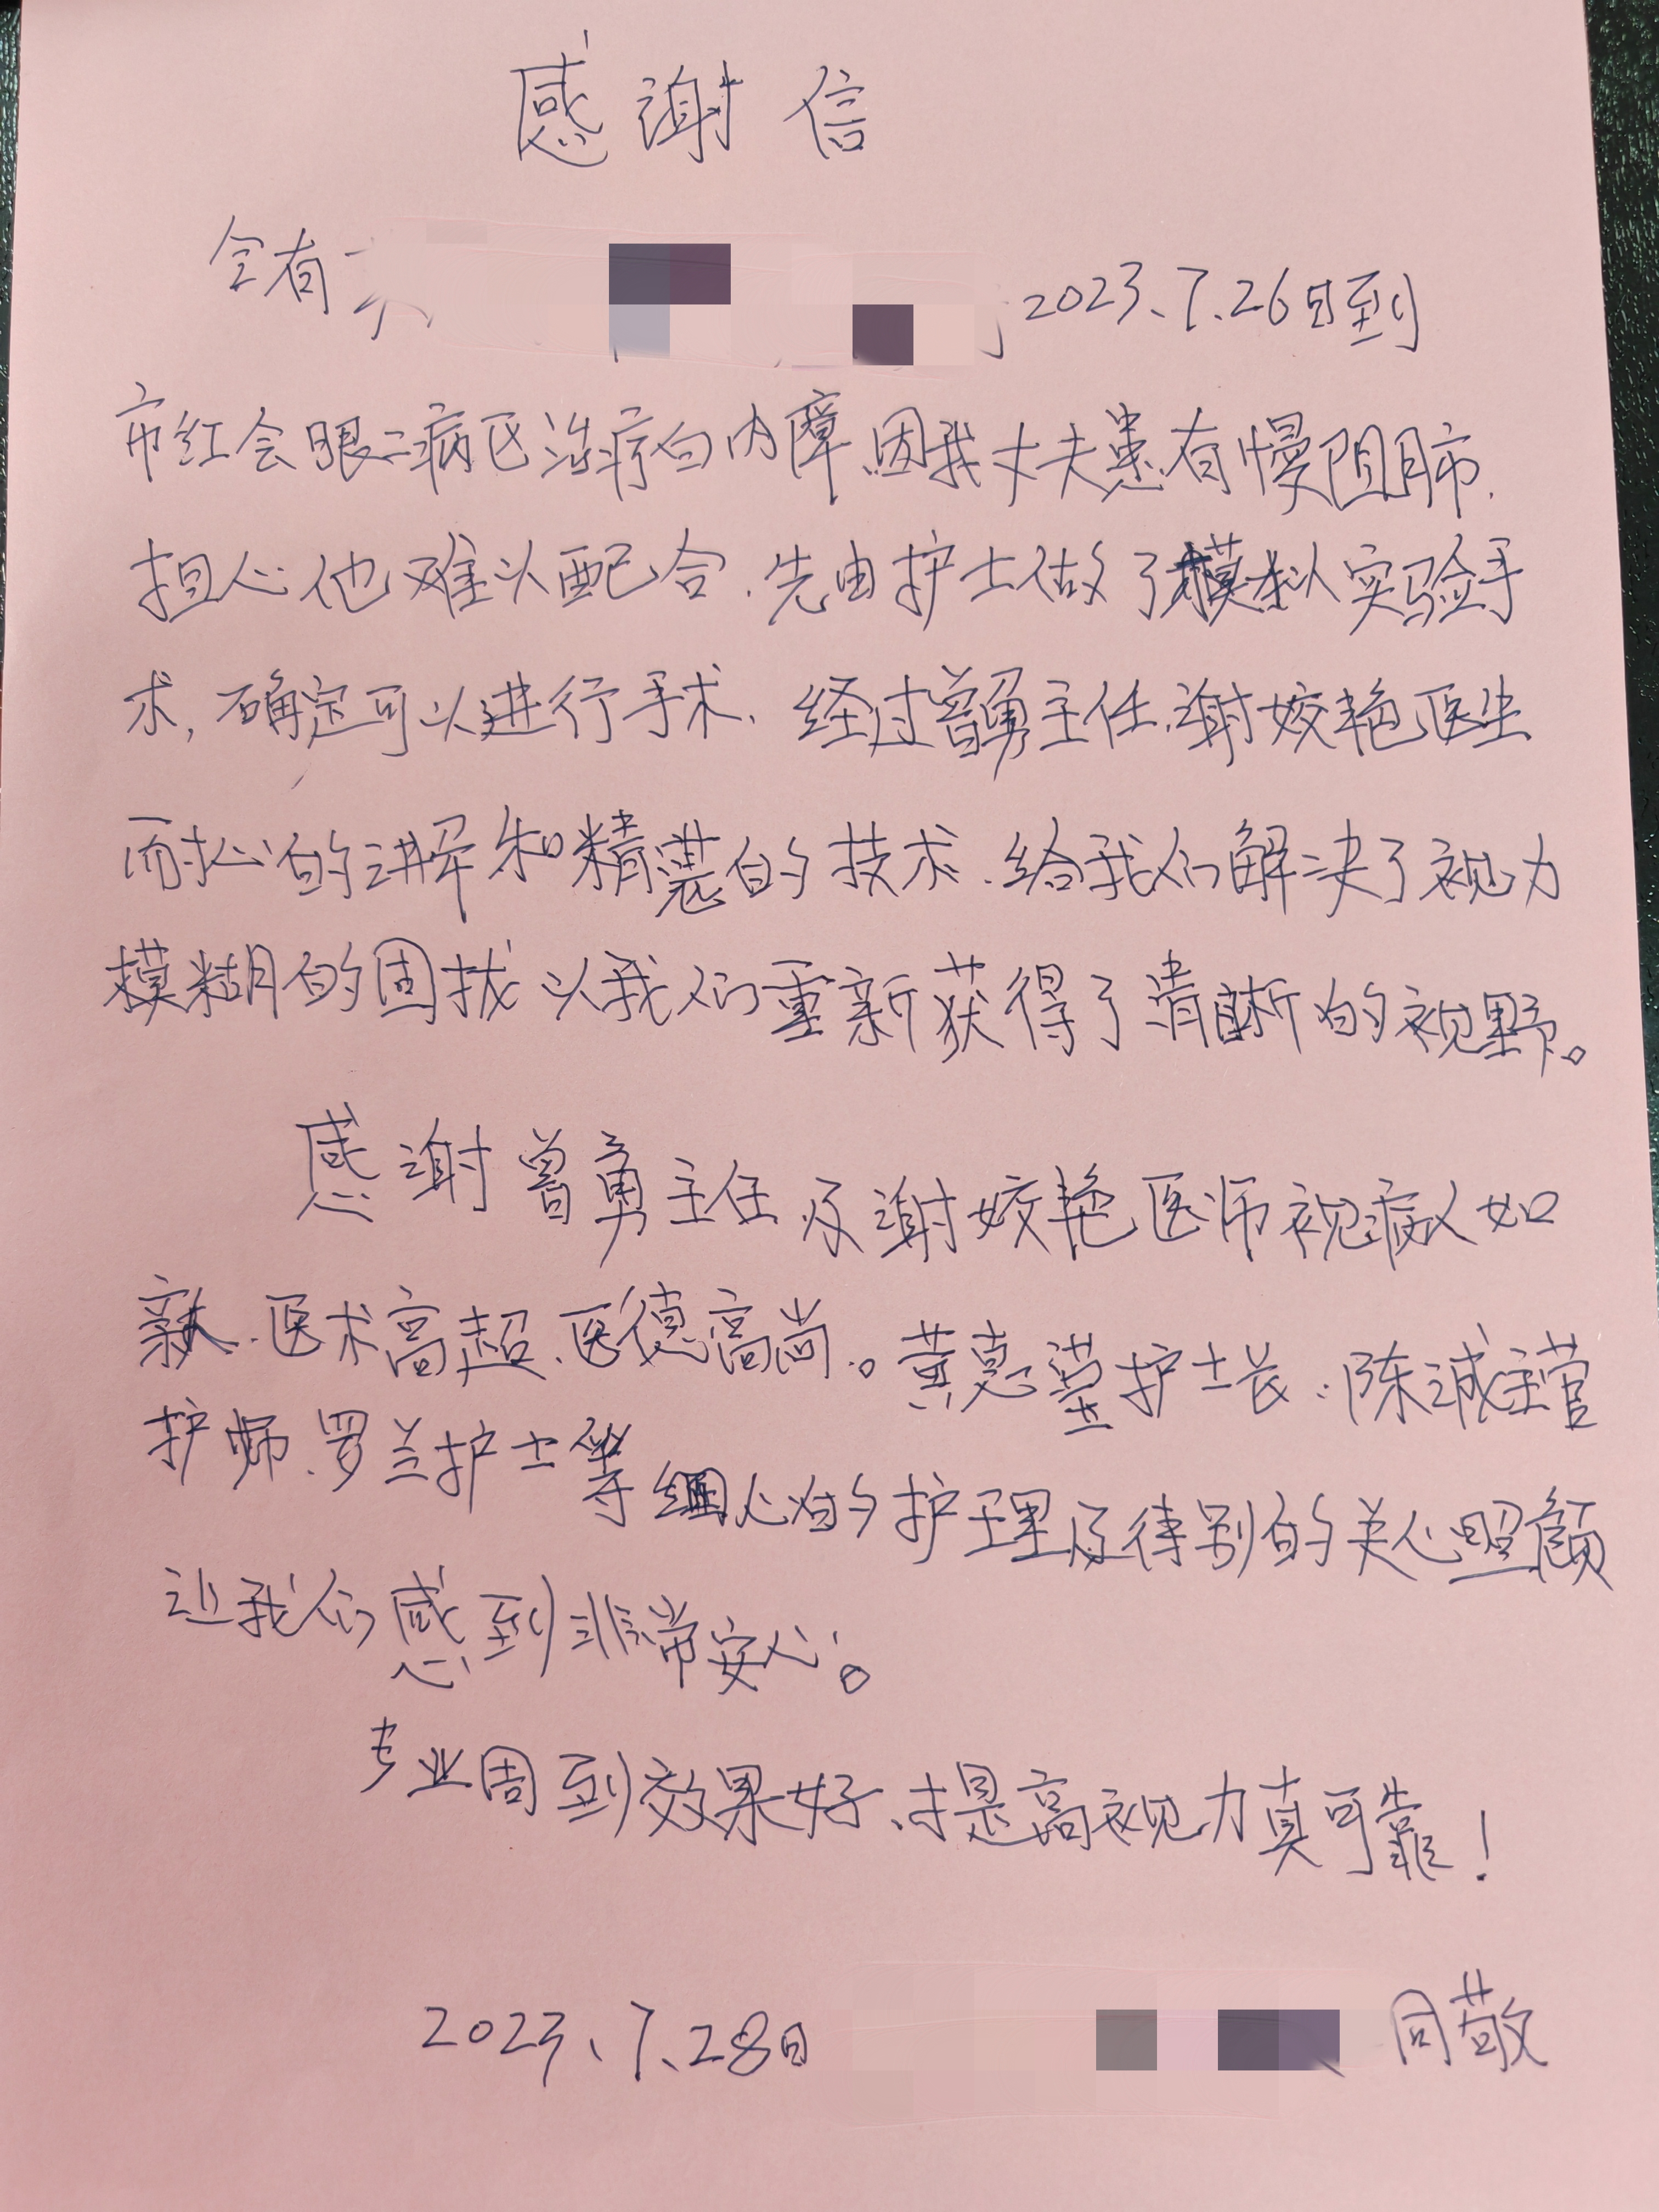 感谢信
今有 2023.7.26日到
市红会眼二病区治疗白内障、因我丈夫患有慢阻肺.
担心他难以配合.先由护士做了模拟实验手
术,确定可以进行手术.经过曾勇主任.谢姣艳医生
耐心的讲解和精湛的技术.给我们解决了视力
模糊的困扰 以我们重新获得了清晰的视野。
感谢曾勇主任及谢姣艳医师视病人如
亲.医术高超、医德高尚。黄慧 护士长、陈诚主管
护师、罗兰护士等细心的护理及特别的关心照顾
让我们感到非常安心。
专业周到效果好、提高视力真可靠!
2023.7.28日 同敬